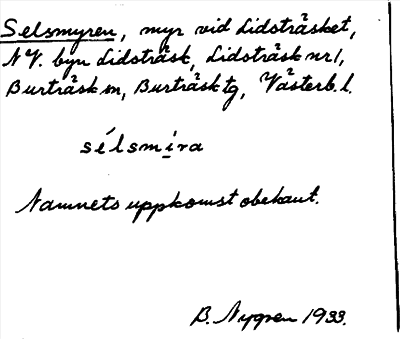 Selsmyren, myr vid Lidsträsket,
NV. byn Lidsträsk, Lidsträsk nr 1,
Burträsk sn, Burträsk tg, Västerb. l.
sélsmira
Namnets uppkomst obekant.
B. Nygren 1933.